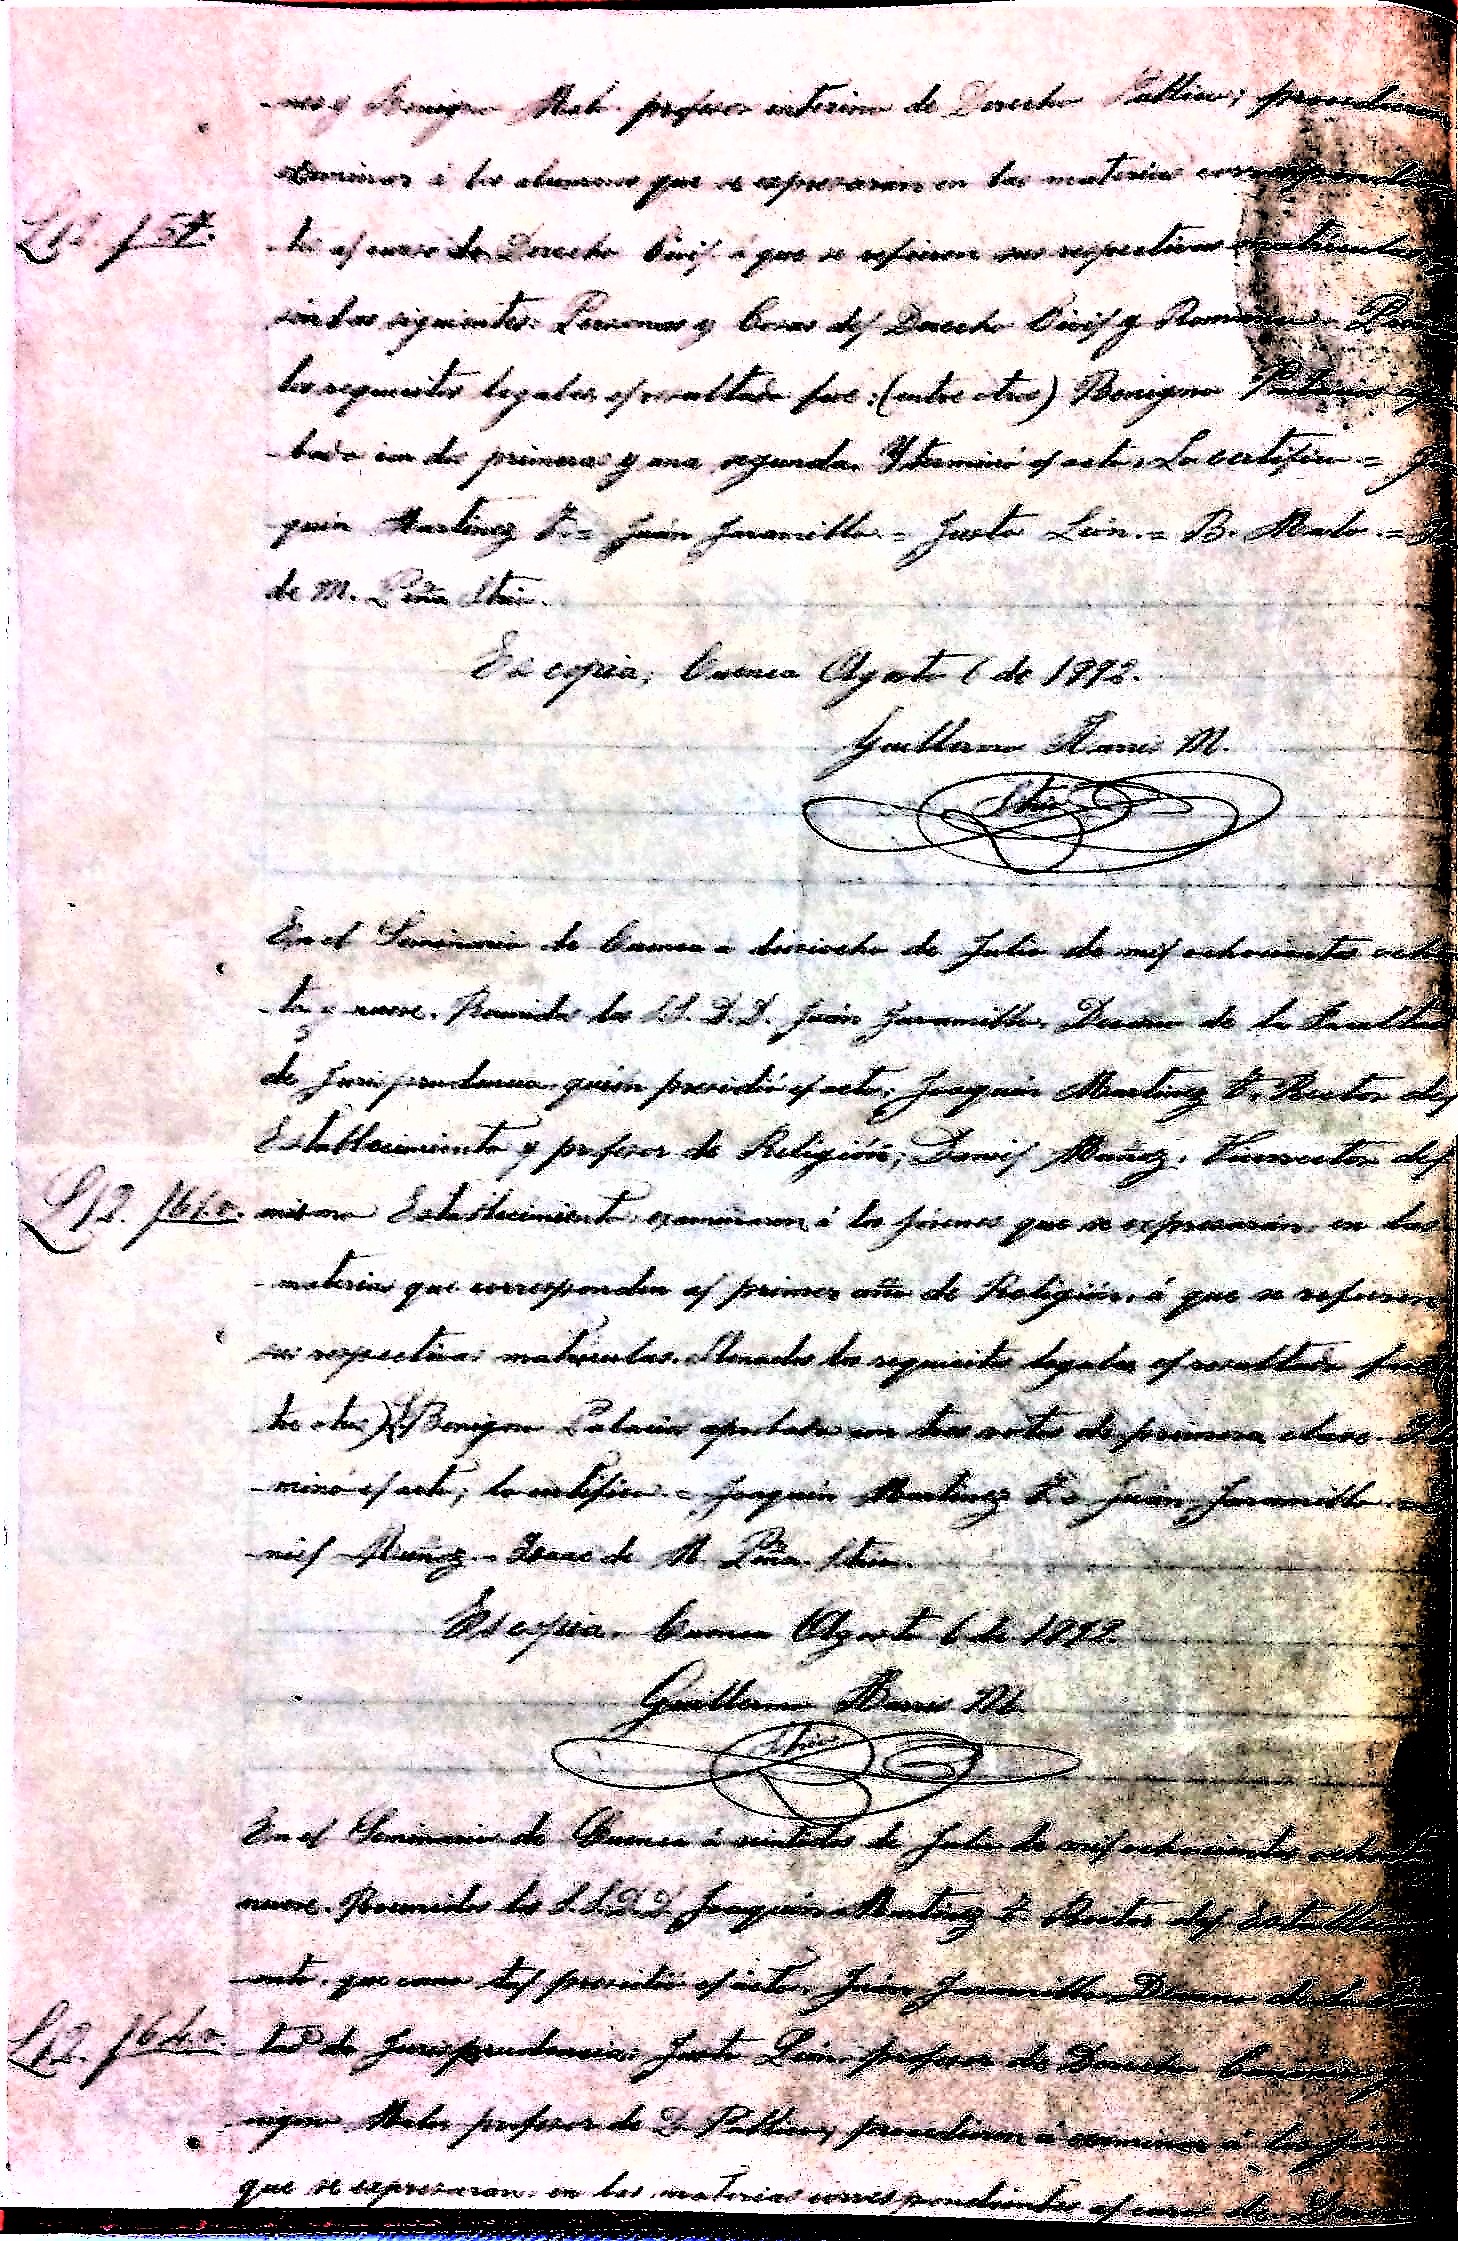 nes y Benigno Malo profesor interino de Derecho Público; procedieron
examinar á los alumnos que se expresarán en las materias correspondien
L. 2. f 57.
tes al curso de Derecho Civil á que se refieren sus respectivas matrículas
son las siguientes: Personas y Cosas del Derecho Civil y Romano
los requisitos legales, el resultado fue: (entre otros) Benigno Palacios apro
bado con dos primeras y una segunda. Y terminó el acto. Lo certifico =
quín Martínez T. = Juán Jaramillo. = Justo León. = B. Malo. =
de M. Peña Strio.
Es copia, Cuenca Agosto 6 de 1892.
Guillermo M.
Strio
En el Seminario de Cuenca a dieciocho de Julio de mil ochocientos ochen
ta y nueve. Reunidos los S.S. D.D. Juán Jaramillo, Decano de la Facultad
de Jurisprudencia quien presidió el acto; Joaquín Martínez T. Rector del
Establecimiento y profesor de Religión; Daniel Muñoz, Vicerrector del
L. 2. f 61. v.
mismo Establecimiento examinaron á los jóvenes que se expresarán, en las
materias que corresponden al primer año de Religión, á que se refieren
sus respectivas matrículas. Llenados los requisitos legales el resultado fue
tre otros) Benigno Palacios aprobado con tres votos de primera clase.
minó el acto; lo certifico. = Joaquín Martínez T. = Juán Jaramillo. =
niel Muñoz. = Isaac de M. Peña. Strio.
Es copia. Cuenca Agosto 6 de 1892
Guillermo M.
Strio
En el Seminario de Cuenca á veintidos de Julio de mil ochocientos ochenta
nueve. Reunidos los S.S.D.D. Joaquín Martínez T. Rector del Estableci
miento, que como tal presidió el acto, Juán Jaramillo Decano de la
L. 2. f 64. v.
tad de Jurisprudencia; Justo León profesor de Derecho
nigno Malo profesor de D. Público; procedieron á examinar á los
que se expresarán, en las materias correspondientes al curso de